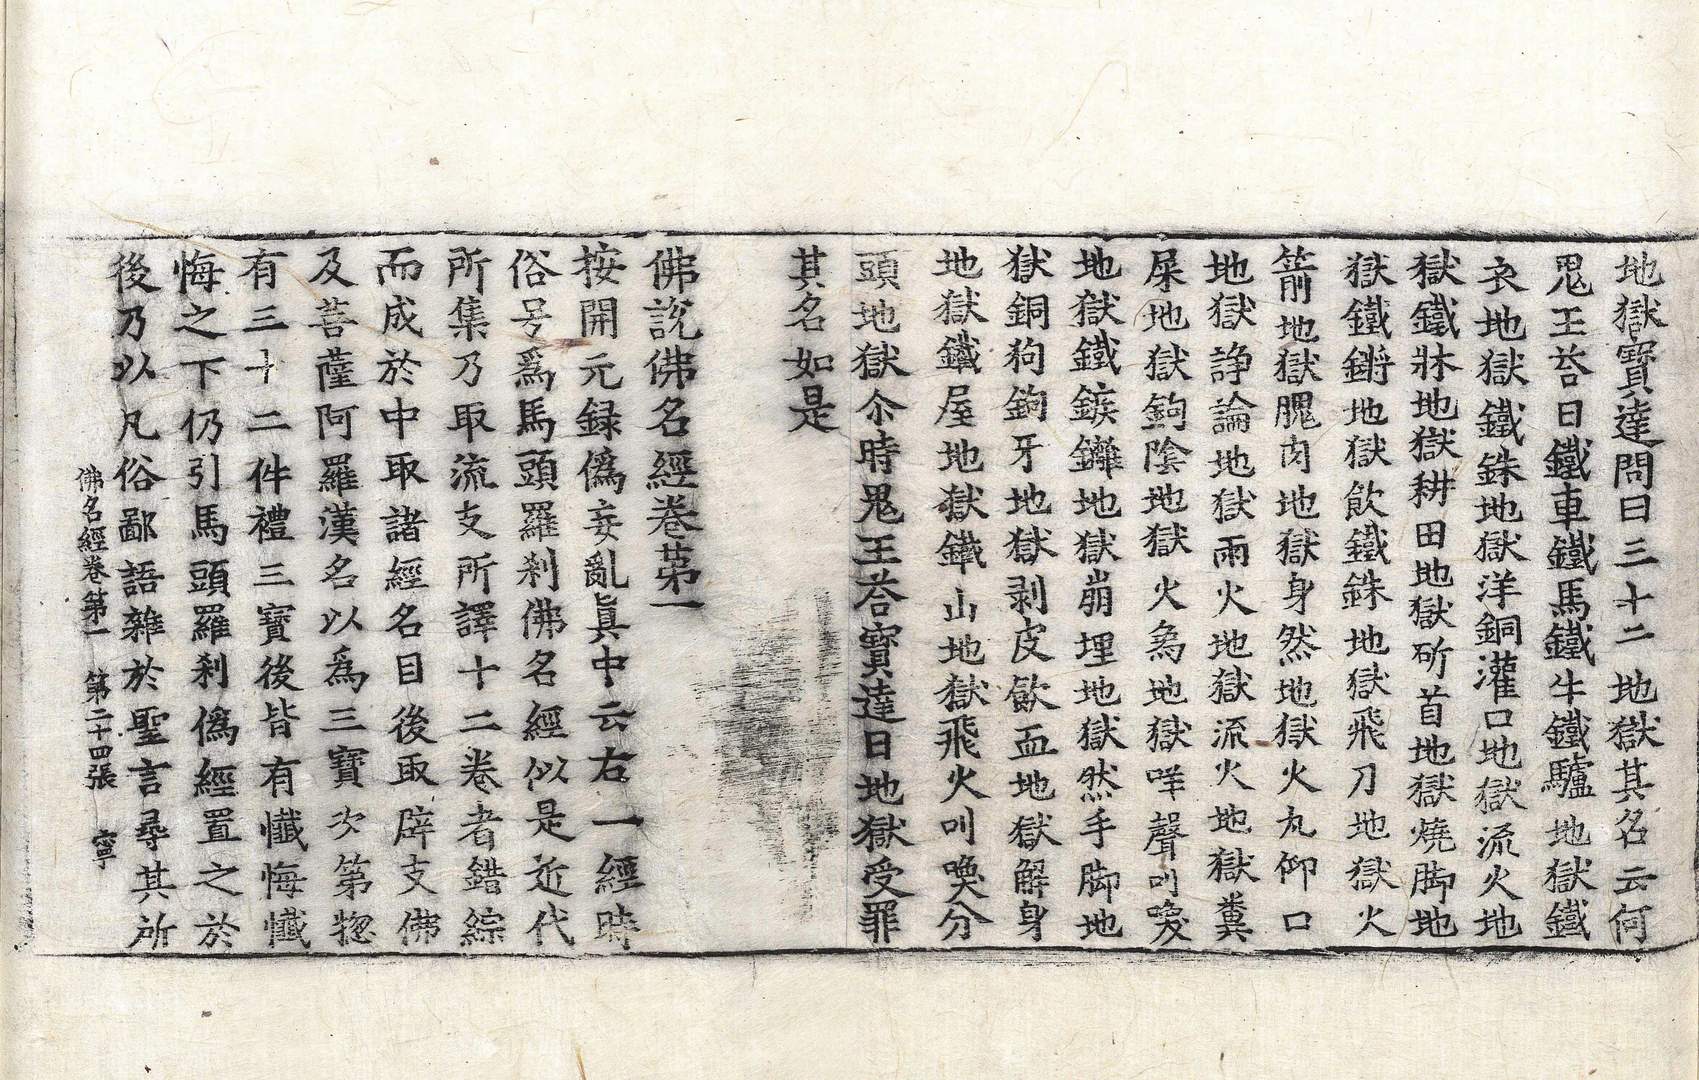 地獄寶達問曰三十二地獄其名云何
鬼王荅曰鐵車鐵馬鐵牛鐵驢地獄鐵
衣地獄鐵銖地獄洋銅灌口地獄流火地
獄鐵牀地獄耕田地獄斫首地獄燒脚地
獄鐵鏘地獄飲鐵銖地獄飛刀地獄火
箭地獄𦞦肉地獄身然地獄火丸仰口
地獄諍論地獄雨火地獄流火地獄糞
屎地獄鉤陰地獄火象地獄咩聲叫喚
地獄鐵鏃鑵地獄崩埋地獄然手脚地
獄銅狗鉤牙地獄剥皮飲血地獄解身
地獄鐵屋地獄鐵山地獄飛火叫喚分
頭地獄尒時鬼王荅寶達曰地獄受罪
其名如是
佛說佛名經卷苐一
按開元録偽妄亂眞中云右一經時
俗号爲馬頭羅刹佛名經似是近代
所集乃取流支所譯十二卷者錯綜
而成於中取諸經名目後取辟支佛
及菩薩阿羅漢名以爲三寶次第惣
有三十二件禮三寶後皆有懺悔懺
悔之下仍引馬頭羅刹偽經置之於
後乃以凡俗鄙語雜於聖言尋其所
佛名經卷第一 第二十四張 寧